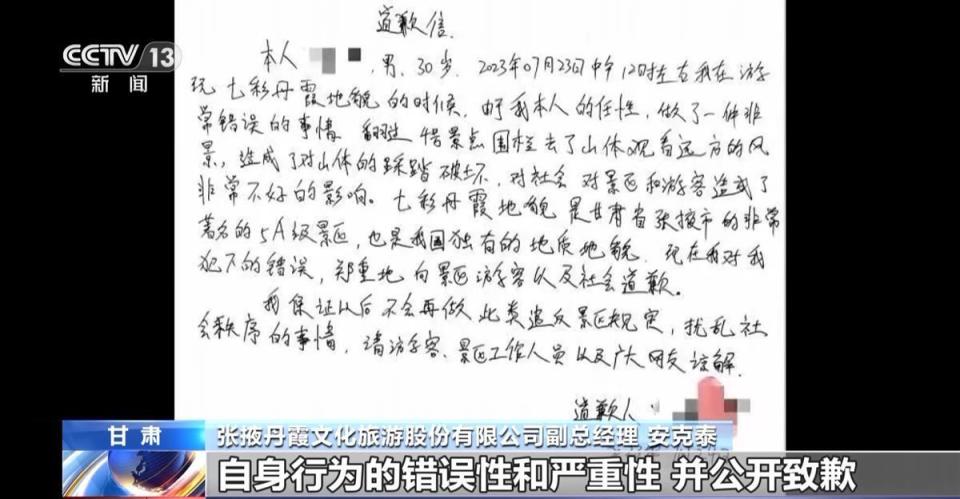 CCTV 13
新闻
道歉信
本人 ,男,30岁,2023年07月23日中午12时左右我在游
玩七彩丹霞地貌的时候,由于我本人的任性,做了一件非
常错误的事情 翻过 景点围栏去了山体观看远方的风
景,造成了对山体的踩踏破坏,对社会 对景区和游客造成了
非常不好的影响。七彩丹霞地貌 是甘肃省张掖市的非常
著名的5A级景区,也是我国独有的地质地貌,现在我对我
犯下的错误,郑重地向景区游客以及社会道歉。
我保证以后不会再做此类违反景区规定,扰乱社
会秩序的事情,请游客、景区工作人员以及广大网友谅解.
道歉人
甘肃
张掖丹霞文化旅游股份有限公司副总经理 安克泰
自身行为的错误性和严重性 并公开致歉